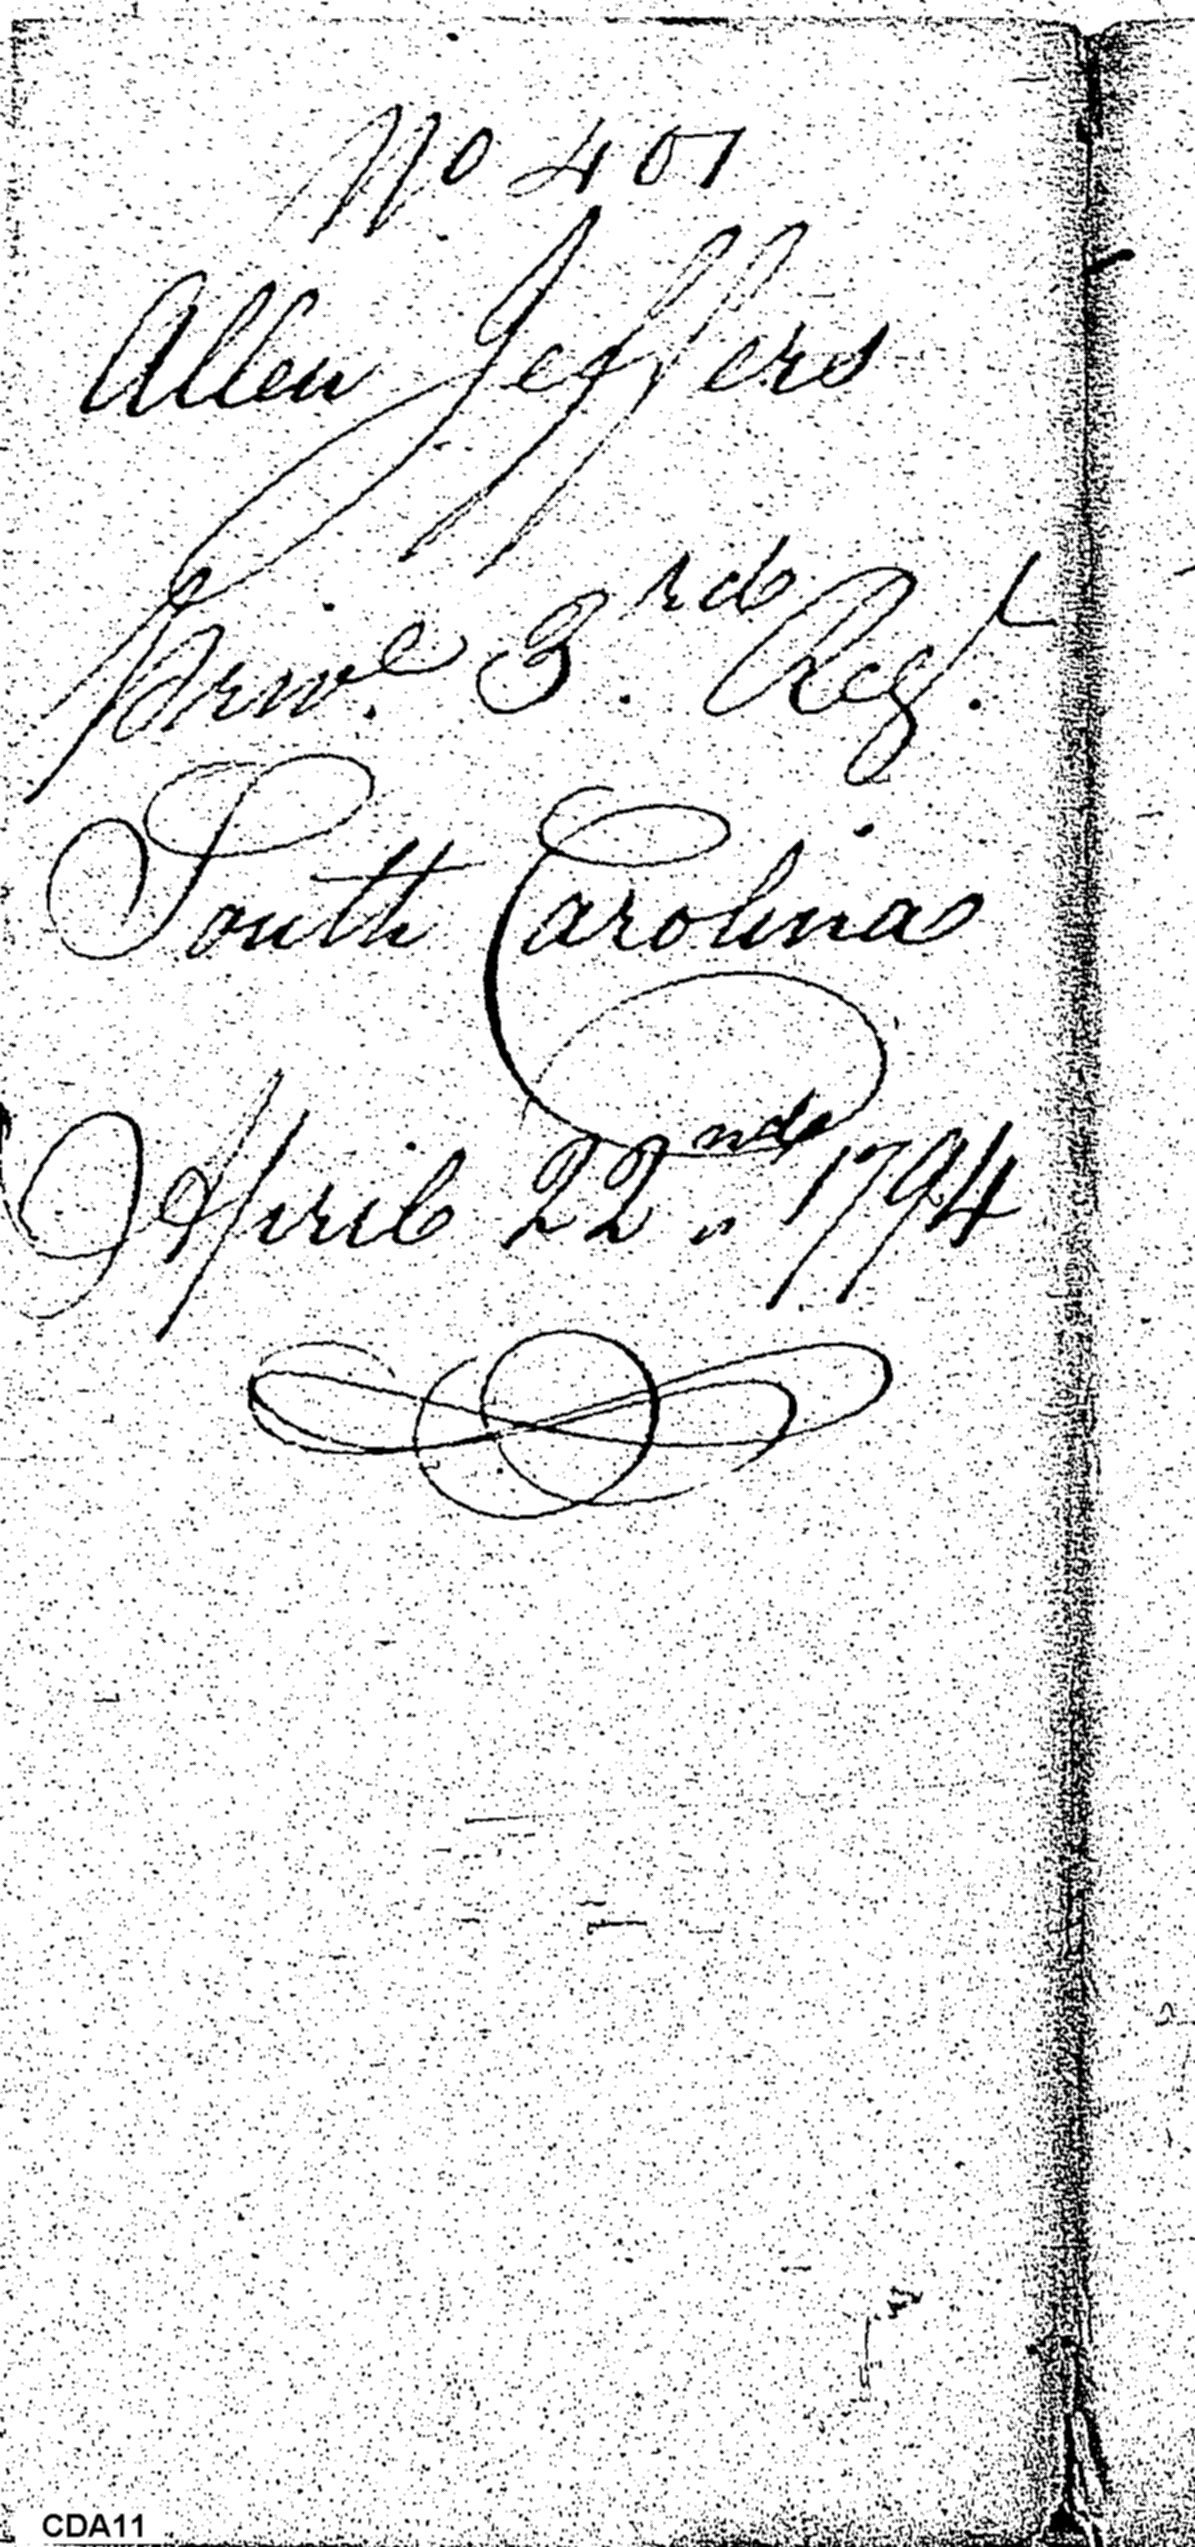 No. 407
Allen Jeffers
Priv.e 3.rd Reg.t
South Carolina
April 22nd " 1794
CDA11